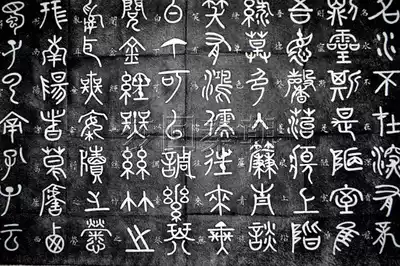 名水不在深有龍
則靈斯是陋室惟
吾德馨苔痕上階
綠草色入簾青談
笑有鴻儒往來無
白丁可以調素琴
閱金經無絲竹之
亂耳無案牘之勞
形南陽諸葛廬西
蜀子云亭孔子云